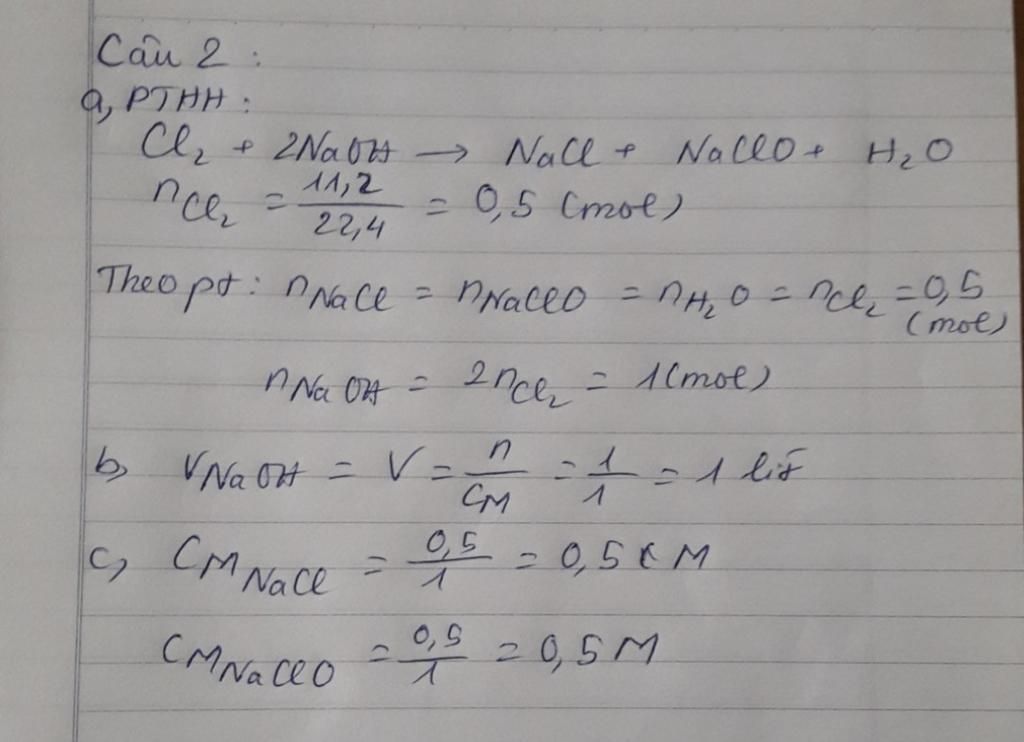 Câu 2 :
a, PTHH :
Cl₂ + 2NaOH → NaCl + NaClO + H₂O
nCl₂ = 11,2 / 22,4 = 0,5 (mol)
Theo pt : nNaCl = nNaClO = nH₂O = nCl₂ = 0,5 (mol)
nNaOH = 2nCl₂ = 1 (mol)
b, VNaOH = V = n / CM = 1 / 1 = 1 lít
c, CM NaCl = 0,5 / 1 = 0,5 M
CM NaClO = 0,5 / 1 = 0,5 M